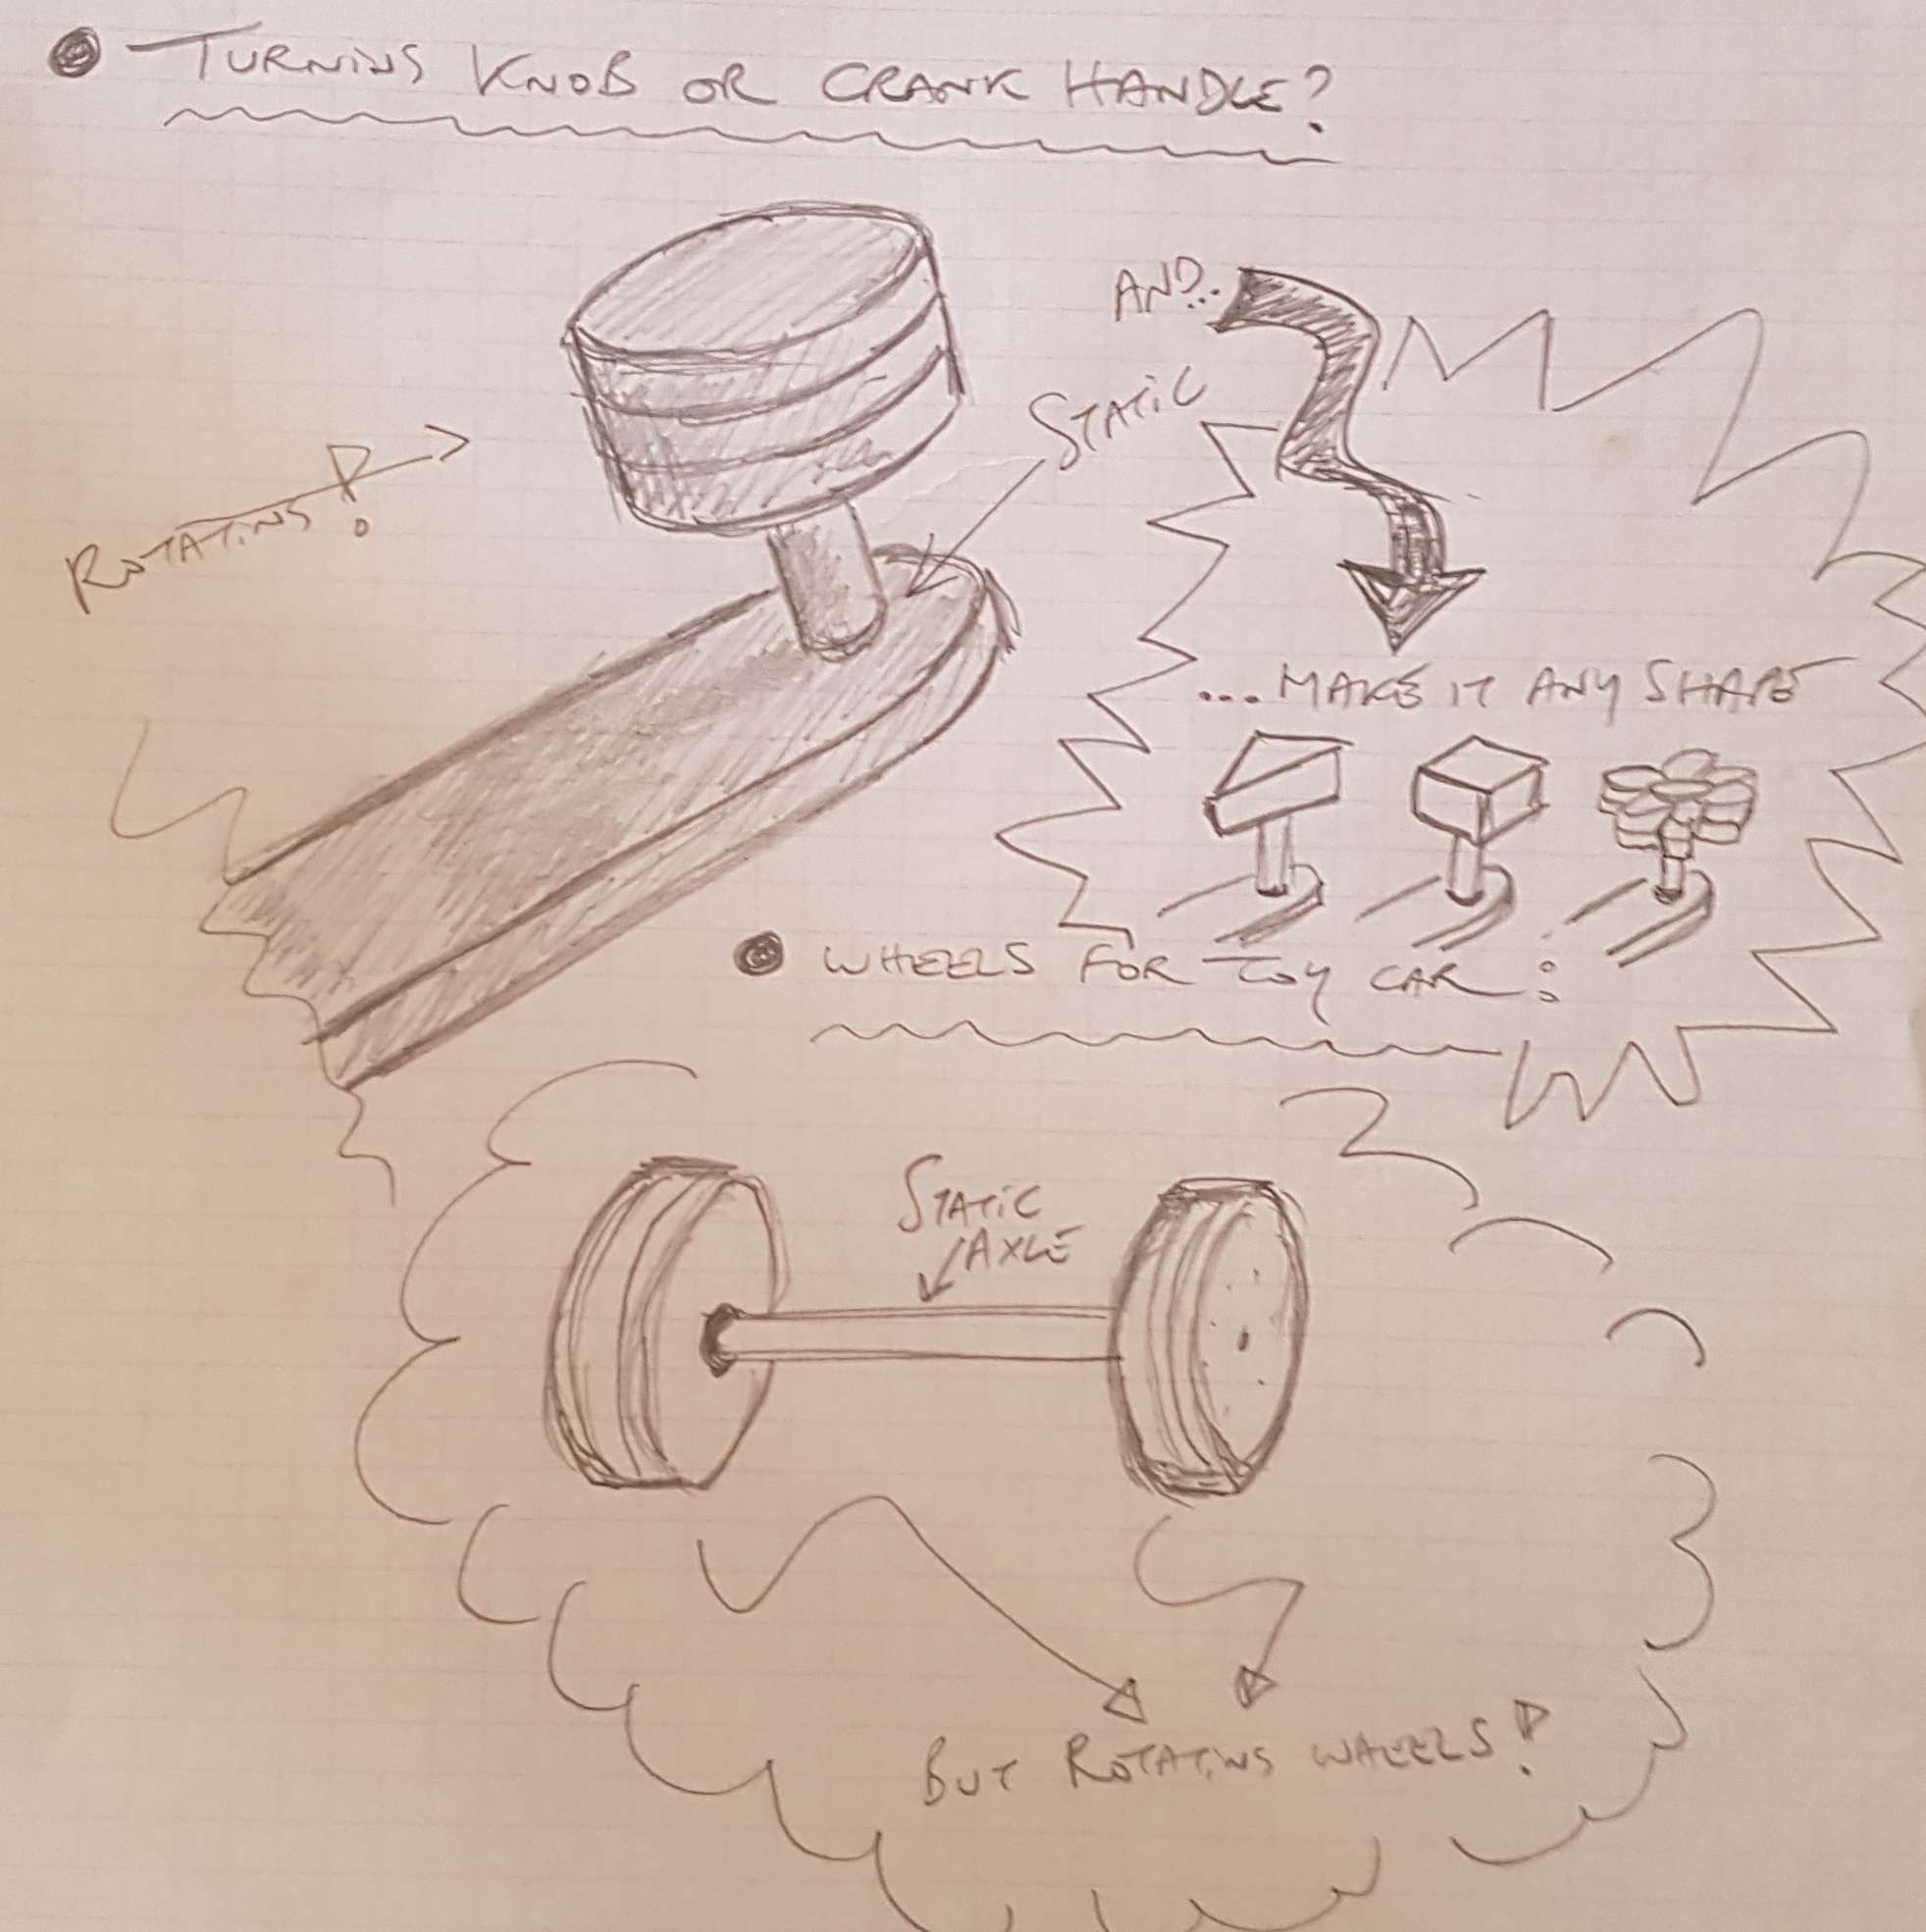 TURNING KNOB OR CRANK HANDLE?
AND...
STATIC
ROTATING!
...MAKE IT ANY SHAPE
WHEELS FOR TOY CAR:
STATIC
AXLE
BUT ROTATING WHEELS!